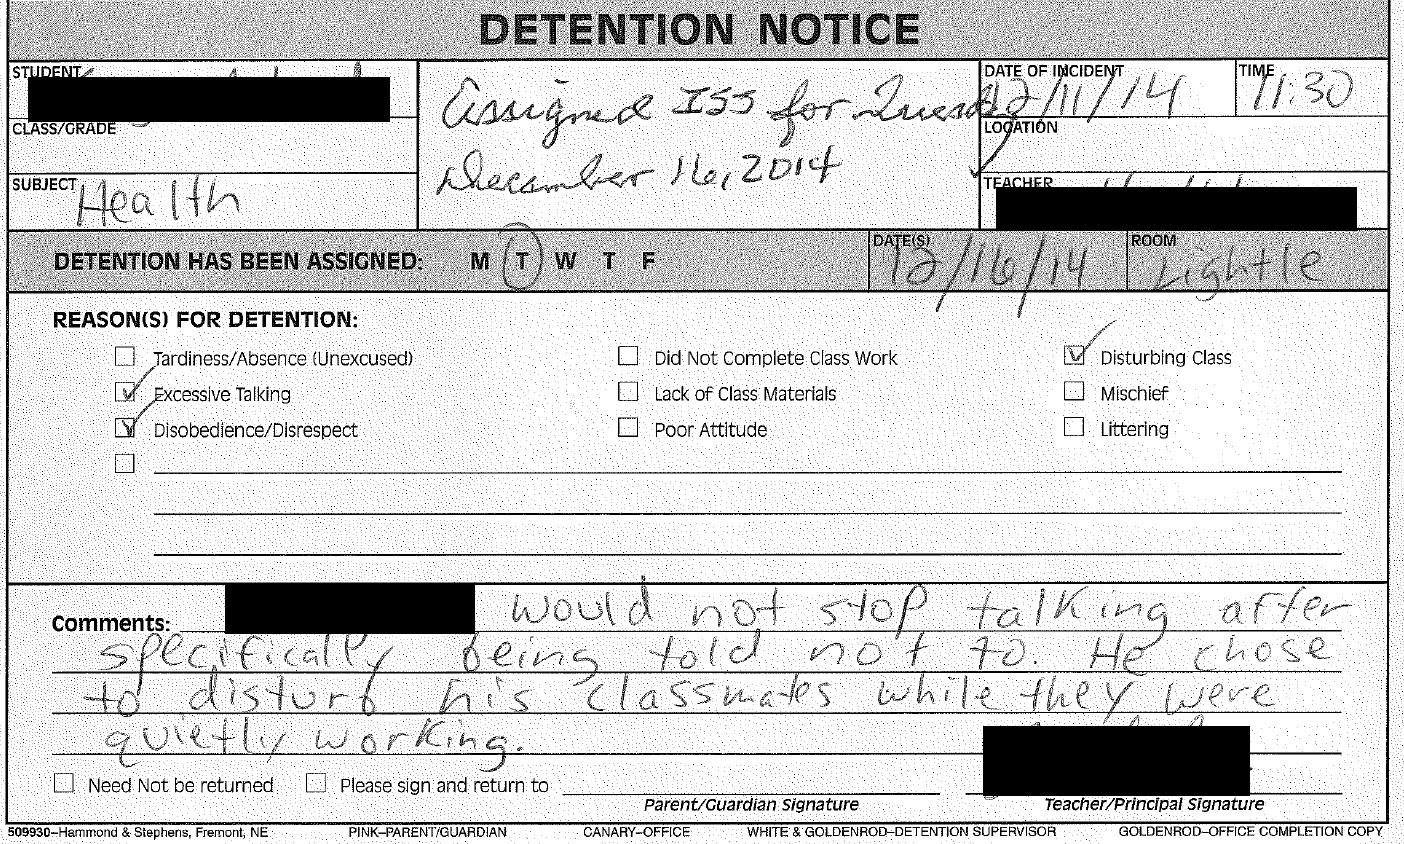 DETENTION NOTICE
STUDENT
CLASS/GRADE
SUBJECT Health
Assigned ISS for Tuesday
December 16, 2014
DATE OF INCIDENT 12/11/14 TIME 11:30
LOCATION
TEACHER
DETENTION HAS BEEN ASSIGNED: M T W T F DATE(S) 12/16/14 ROOM Lightle
REASON(S) FOR DETENTION:
Tardiness/Absence (Unexcused) Did Not Complete Class Work Disturbing Class
Excessive Talking Lack of Class Materials Mischief
Disobedience/Disrespect Poor Attitude Littering
Comments: would not stop talking after
specifically being told not to. He chose
to disturb his classmates while they were
quietly working.
Need Not be returned Please sign and return to
Parent/Guardian Signature Teacher/Principal Signature
509930–Hammond & Stephens, Fremont, NE PINK–PARENT/GUARDIAN CANARY–OFFICE WHITE & GOLDENROD–DETENTION SUPERVISOR GOLDENROD–OFFICE COMPLETION COPY